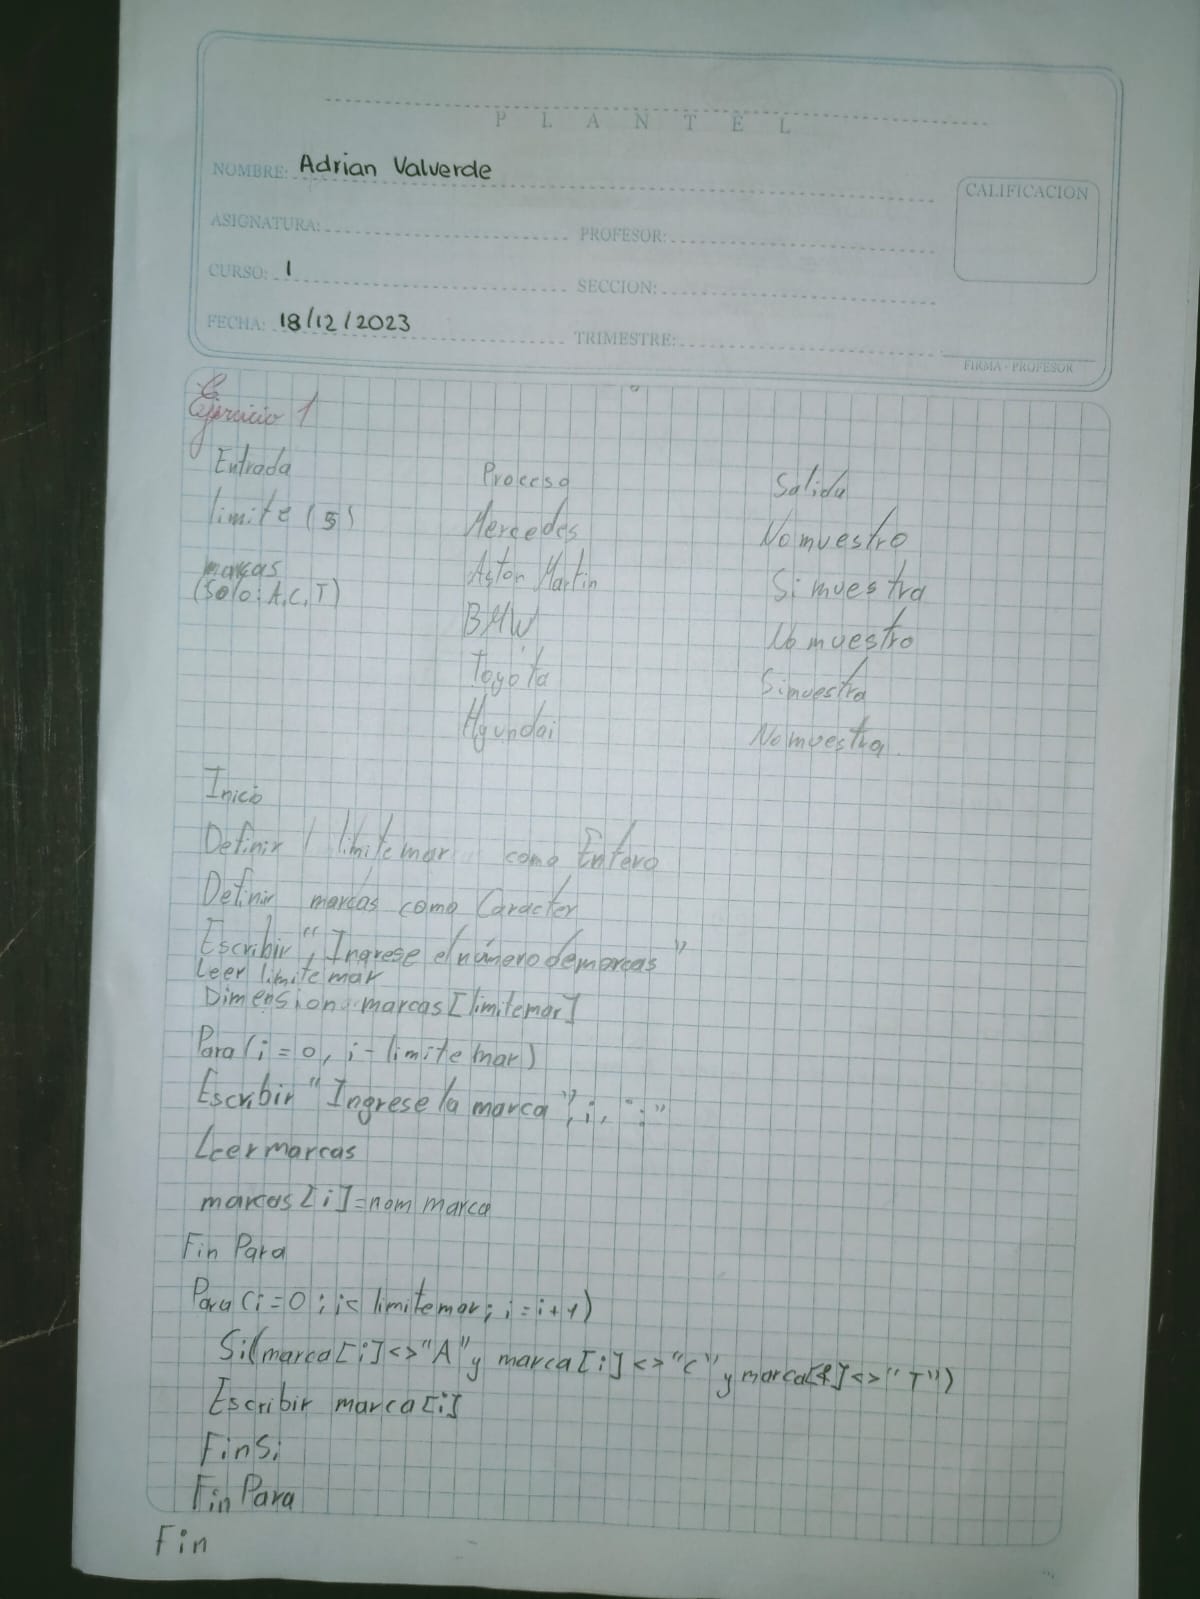 PLANTEL
NOMBRE: Adrian Valverde
CALIFICACION
ASIGNATURA: PROFESOR:
CURSO: 1 SECCION:
FECHA: 18/12/2023 TRIMESTRE:
FIRMA - PROFESOR
Ejercicio 1
Entrada Proceso Salida
limite (5) Mercedes No muestro
marcas Aston Martin Si muestra
(Solo: A, C, T)
BMW No muestro
Toyota Si muestra
Hyundai No muestra.
Inicio
Definir limitemar como Entero
Definir marcas como Caracter
Escribir "Ingrese el número de marcas"
Leer limitemar
Dimension marcas [limitemar]
Para (i = 0, i - limitemar)
Escribir "Ingrese la marca", i, ":"
Leer marcas
marcas [i] = nom marca
Fin Para
Para (i = 0; i < limitemar; i = i + 1)
Si (marca [i] <> "A" y marca [i] <> "C" y marca [i] <> "T")
Escribir marca [i]
Fin Si
Fin Para
Fin